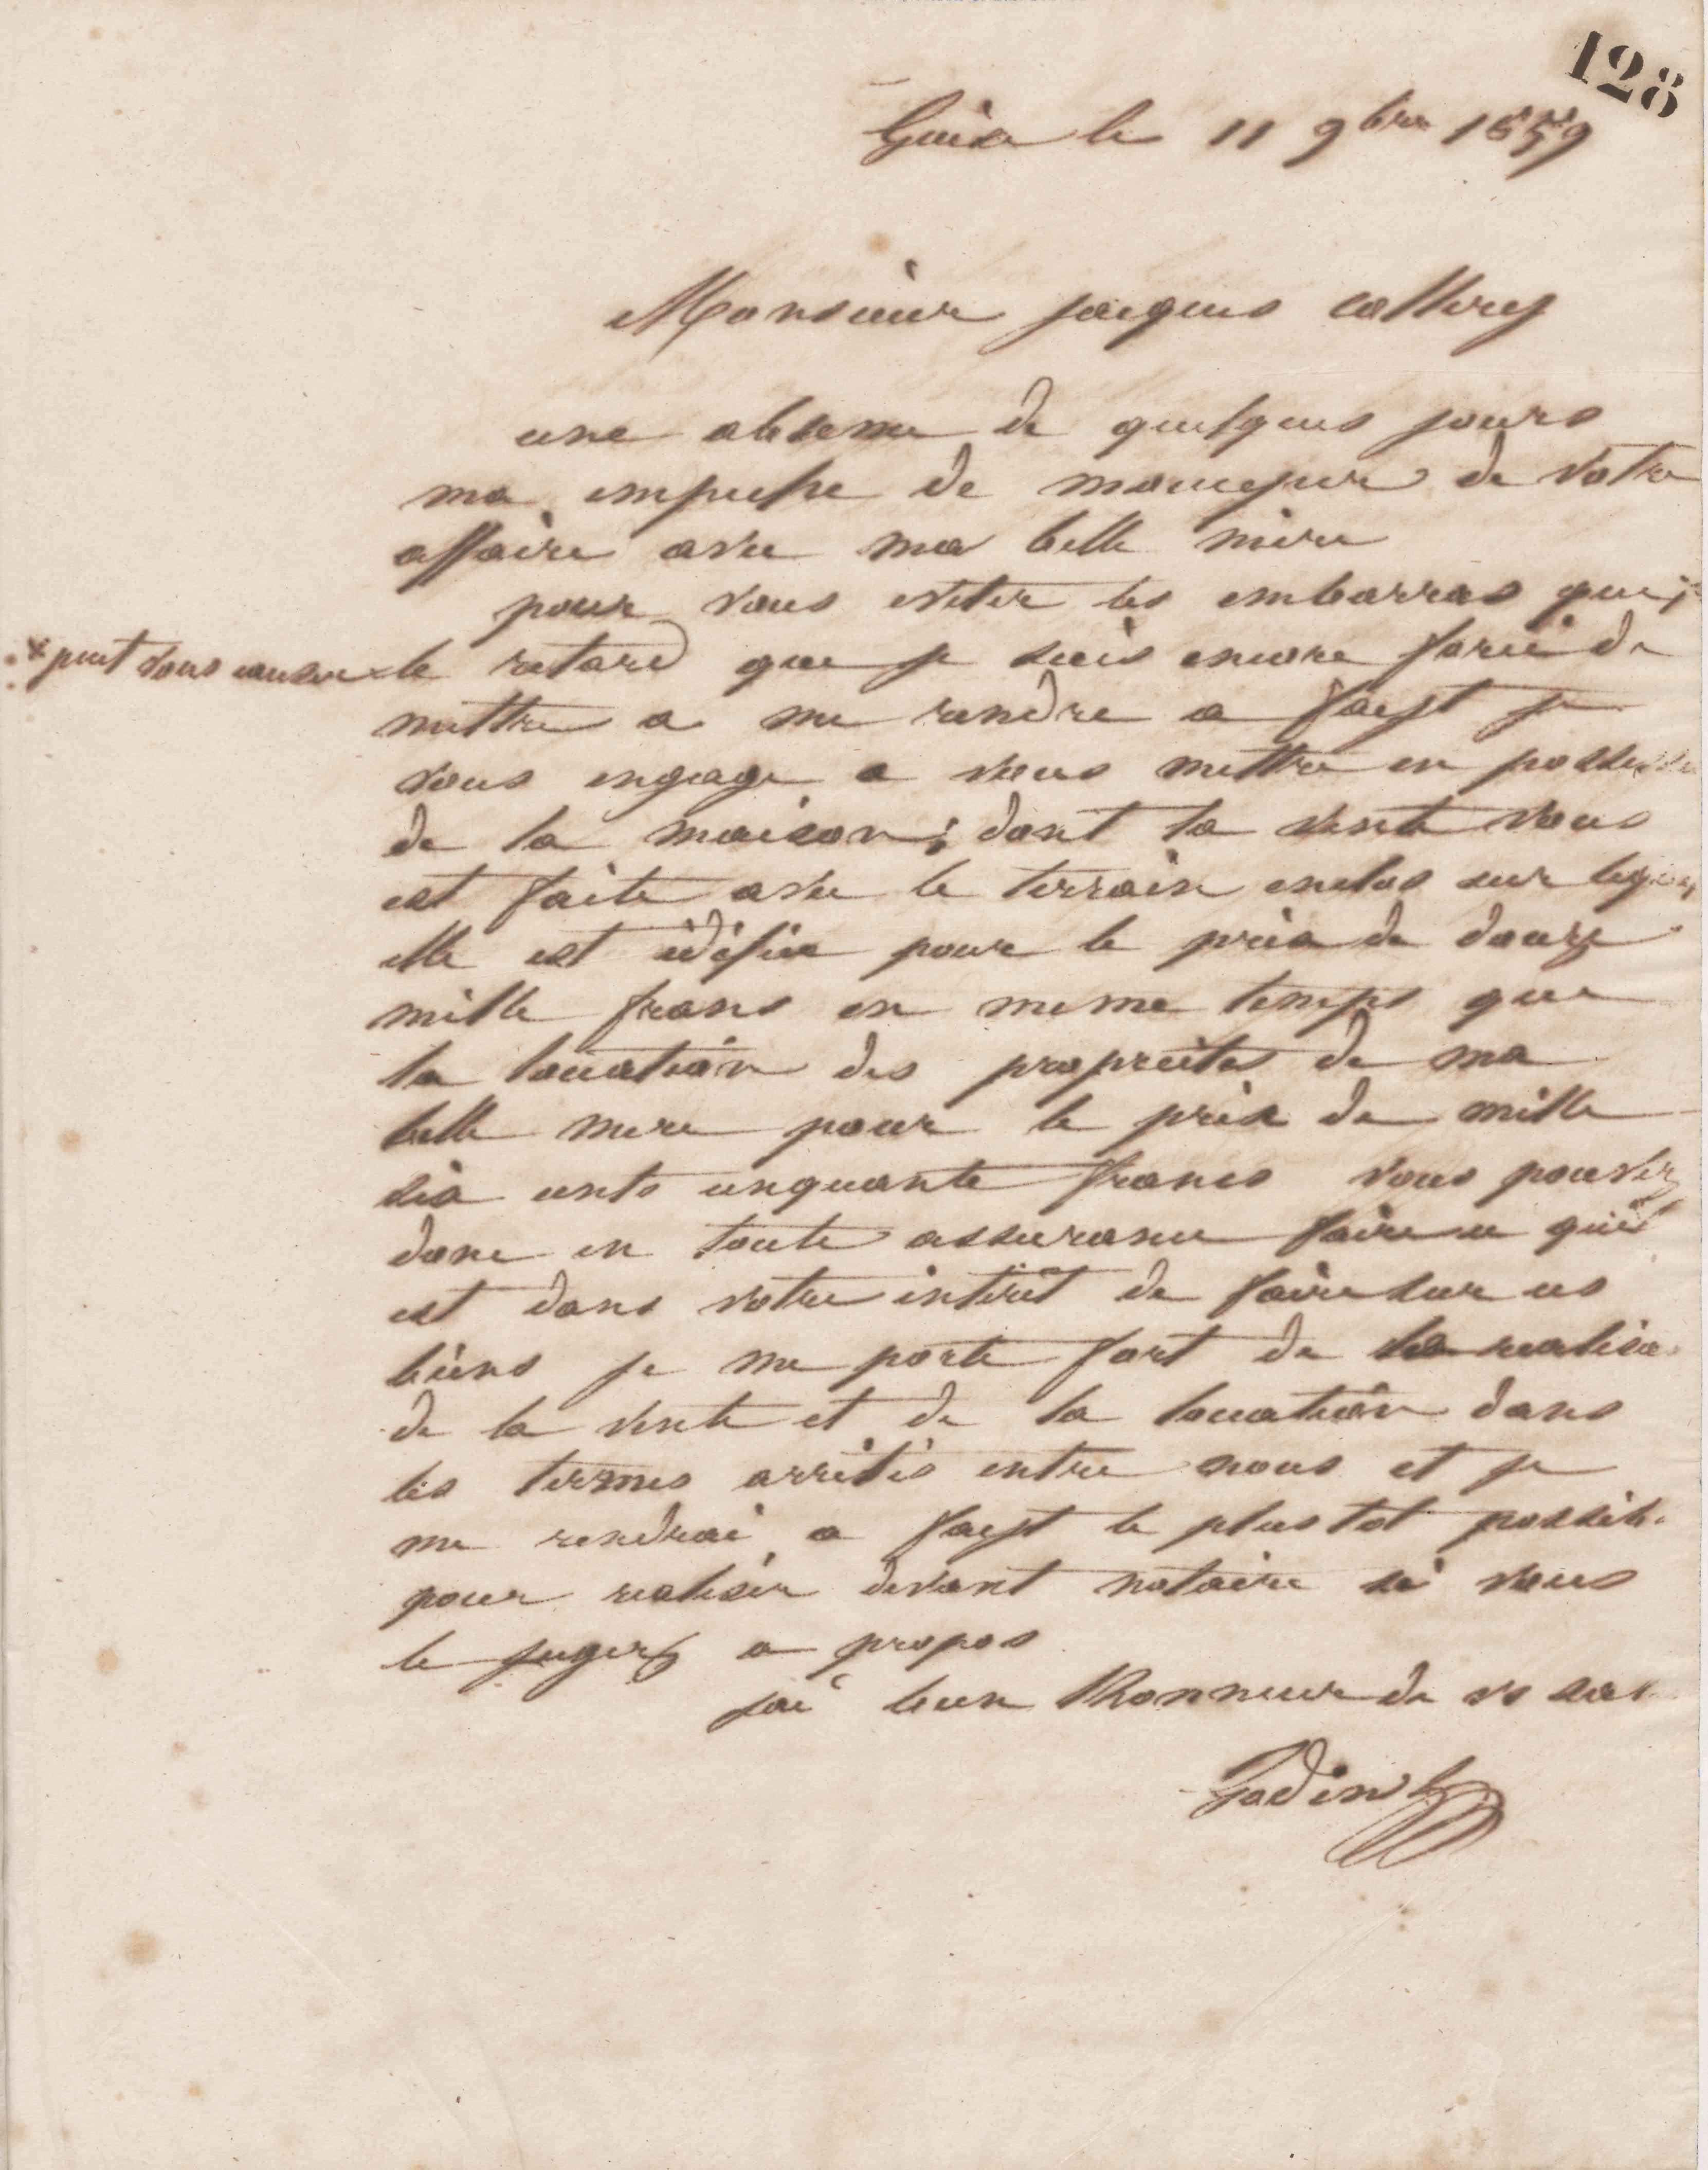 128
Guise le 11 9bre 1859
Monsieur jacques
une absence de quelques jours
ma empeche de moccuper de votre
affaire avec ma belle mère
pour vous eviter les embarras que
* peut vous causer le retard que je suis encore forcé de
mettre a me rendre a je
vous engage a vous mettre en
de la maison, dont la vente vous
est faite avec le terrain enclos sur
elle est édifiée pour le prix de douze
mille francs en meme temps que
la location des proprietes de ma
belle mere pour le prix de mille
six cents cinquante francs vous pouvez
donc en toute assurance faire ce quil
est dans votre intérêt de faire sur ces
biens je me porte fort de realiser
de la vente et de la location dans
les termes arrêtés entre nous et je
me rendrai a le plus tot possible
pour realiser devant notaire si vous
le jugez a propos
jai bien lhonneur de vs
Godin